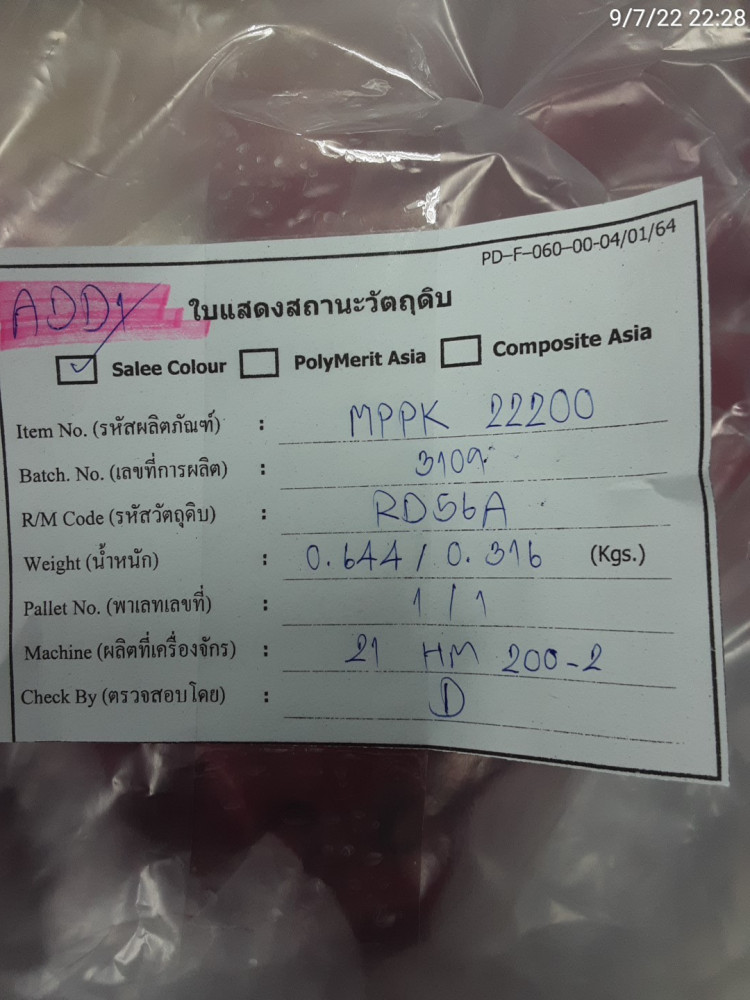 9/7/22 22:28
PD-F-060-00-04/01/64
ADD1
ใบแสดงสถานะวัตถุดิบ
Salee Colour PolyMerit Asia Composite Asia
Item No. (รหัสผลิตภัณฑ์) : MPPK 22200
Batch. No. (เลขที่การผลิต) : 3109
R/M Code (รหัสวัตถุดิบ) : RD56A
Weight (น้ำหนัก) : 0.644 / 0.316 (Kgs.)
Pallet No. (พาเลทเลขที่) : 1 / 1
Machine (ผลิตที่เครื่องจักร) : 21 HM 200-2
Check By (ตรวจสอบโดย) :